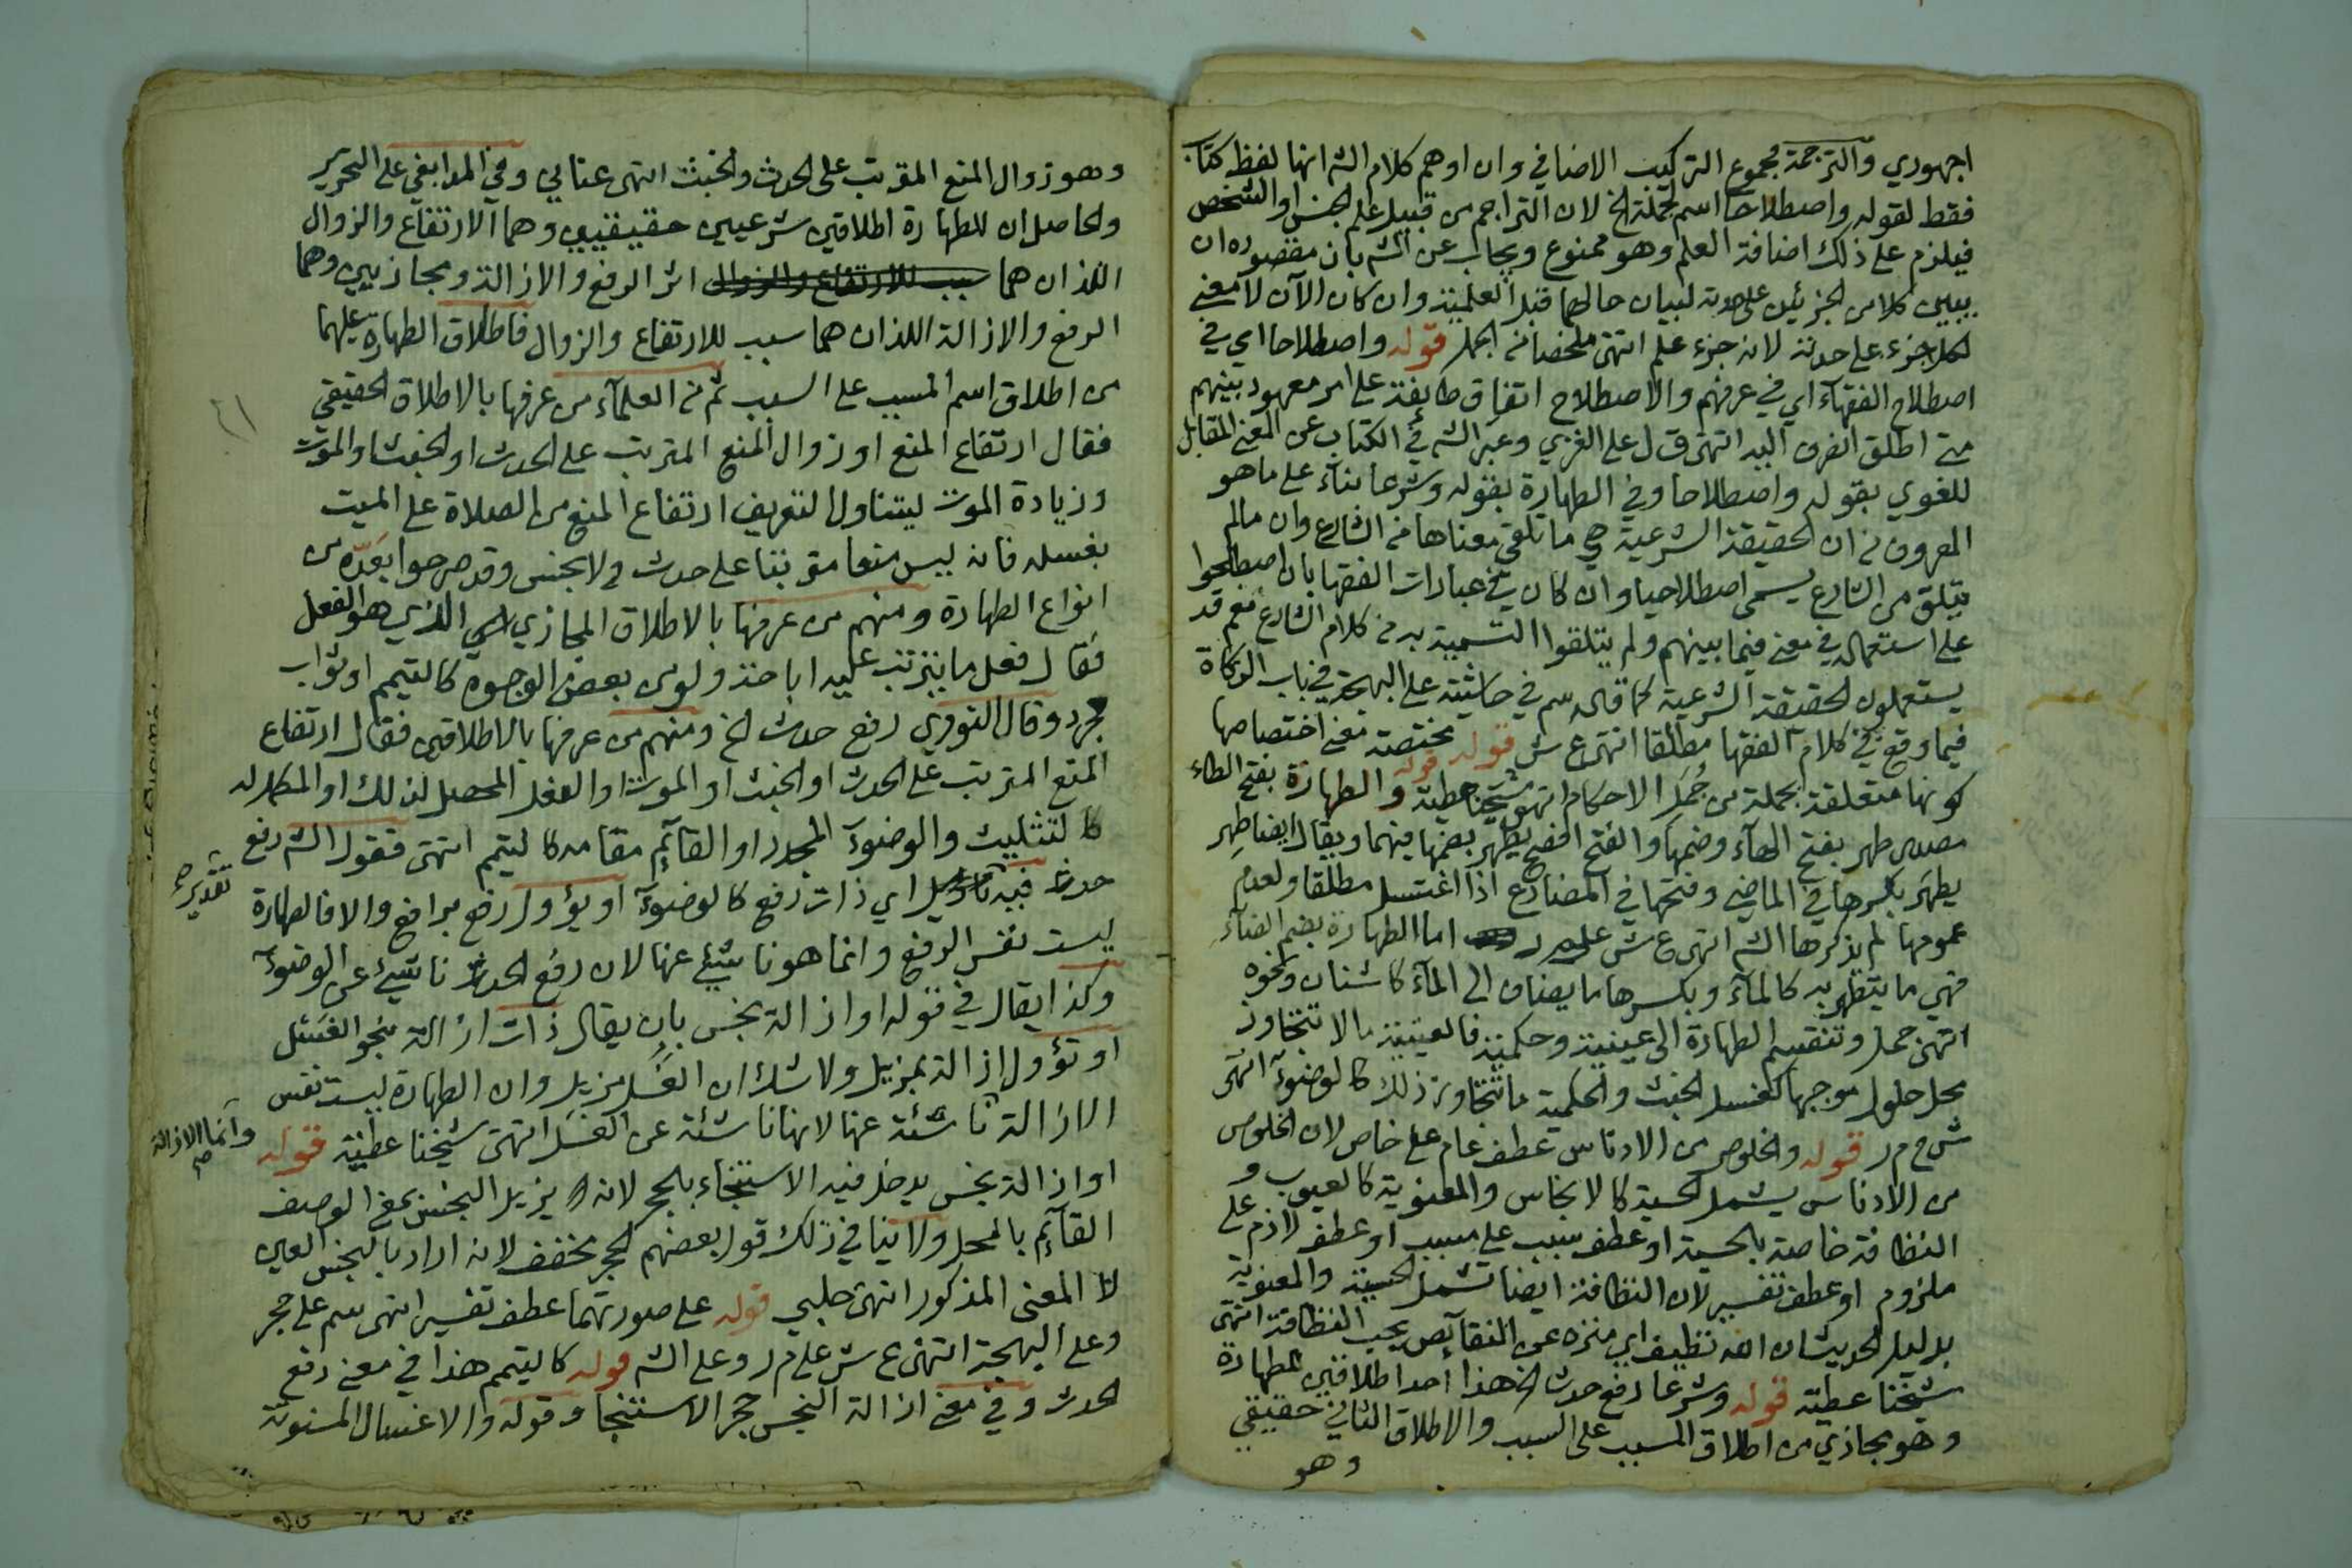 اجهوري والترجمة مجموع التركيب الاضافي وان اوهم كلام الش انها لفظ كتاب
فقط لقوله واصطلاحا اسم لجملة الخ لان التراجم من قبيل علم الجنس او الشخص
فيلزم على ذلك اضافة العلم وهو ممنوع ويجاب عن الش بان مقصوده ان
يبين كلا من الجزئين على حدته لبيان حالهما قبل العلمية وان كان الآن لا معنى
لكل جزء على حدته لانه جزء علم انتهى ملخصا من اجمل قوله واصطلاحا اي في
اصطلاح الفقهاء اي في عرفهم والاصطلاح اتفاق طايفة على امر معهود بينهم
متى اطلق انصرف اليه انتهى ق ل على الغزي وعبر الش في الكتاب عن المعنى المقابل
للغوي بقوله واصطلاحا وفي الطهارة بقوله وشرعا بناء على ما هو
المعروف من ان الحقيقة الشرعية هي ما تلقي معناها من الشارع وان مالم
يتلق من الشارع يسمى اصطلاحيا وان كان في عبارات الفقها بان اصطلحوا
على استعماله في معنى فيما بينهم ولم يتلقوا التسمية به من كلام الشارع نعم قد
يستعملون الحقيقة الشرعية كما قاله سم في حاشيته على البهجة في باب الزكاة
فيما وقع في كلام الفقها مطلقا انتهى ع ش قوله مختصة معنى اختصاصها
كونها متعلقة بجملة من جمل الاحكام انتهى شيخنا عطية قوله والطهارة بفتح الطاء
مصدر طهر بفتح الهاء وضمها والفتح افصح يطهر بضمها فيهما ويقال ايضا طهِر
يطهَر بكسرها في الماضي وفتحها في المضارع اذا اغتسل مطلقا ولعدم
عمومها لم يذكرها الش انتهى ع ش على م ر اما الطهارة بضم الطاء
فهي ما يتطهر به كالماء وبكسرها ما يضاف الى الماء كاشنان ونحوه
انتهى جمل وتنقسم الطهارة الى عينية وحكمية فالعينية ما لا تتجاوز
محل حلول موجبها كغسل الخبث والحكمية ما تتجاوز ذلك كالوضوء انتهى
ش م ر قوله والخلوص من الادناس عطف عام على خاص لان الخلوص
من الادناس يشمل الحسية كالانجاس والمعنوية كالعيوب و
النظافة خاصة بالحسية او عطف سبب على مسبب او عطف لازم على
ملزوم او عطف تفسير لان النظافة ايضا تشمل الحسية والمعنوية
بدليل الحديث ان الله نظيف اي منزه عن النقائص يحب النظافة انتهى
شيخنا عطية قوله وشرعا رفع حدث الخ هذا احد اطلاقين للطهارة
وهو مجازي من اطلاق المسبب على السبب والاطلاق الثاني حقيقي
وهو
وهو زوال المنع المترتب على الحدث والخبث انتهى عناني وفي المدابغي على التحرير
والحاصل ان للطهارة اطلاقين شرعيين حقيقيين وهما الارتفاع والزوال
اللذان هما سبب للارتفاع والزوال اثر الرفع والازالة ومجازيين وهما
الرفع والازالة اللذان هما سبب للارتفاع والزوال فاطلاق الطهارة عليهما
من اطلاق اسم المسبب على السبب ثم من العلماء من عرفها بالاطلاق الحقيقي
فقال ارتفاع المنع او زوال المنع المترتب على الحدث او الخبث او الموت
وزيادة الموت ليتناول التعريف ارتفاع المنع من الصلاة على الميت
بغسله فانه ليس منعا مترتبا على حدث ولا نجس وقد صرحوا بعدّه من
انواع الطهارة ومنهم من عرفها بالاطلاق المجازي الذي هو الفعل
فقال فعل ما يترتب عليه اباحة ولو من بعض الوجوه كالتيمم او ثواب
مجرد وقال النووي رفع حدث الخ ومنهم من عرفها بالاطلاقين فقال ارتفاع
المنع المترتب على الحدث او الخبث او الموت او الفعل المحصل لذلك او المكمل له
كالتثليث والوضوء المجدد او القائم مقامه كالتيمم انتهى فقول الش رفع
تقدير صح
حدث فيه اي ذات رفع كالوضوء او يؤول رفع برافع والا فالطهارة
ليست نفس الرفع وانما هو ناشئ عنها لان رفع الحدث ناشئ عن الوضوء
وكذا يقال في قوله او ازالة نجس بان يقال ذات ازالة نحو الغَسل
او تؤول ازالة بمزيل ولا شك ان الغسل مزيل وان الطهارة ليست نفس
الازالة ناشئة عنها لانها ناشئة عن الغسل انتهى شيخنا عطية قوله
وانما الازالة صح
او ازالة نجس يدخل فيه الاستنجاء بالحجر لانه يزيل النجس بمعنى الوصف
القائم بالمحل ولا ينافي ذلك قول بعضهم الحجر مخفف لانه اراد بالنجس العين
لا المعنى المذكور انتهى حلبي قوله على صورتهما عطف تفسير انتهى سم على حجر
وعلى البهجة انتهى ع ش على م ر وعلى الش قوله كالتيمم هذا في معنى رفع
الحدث وفي معنى ازالة النجس حجر الاستنجا وقوله والاغسال المسنونة